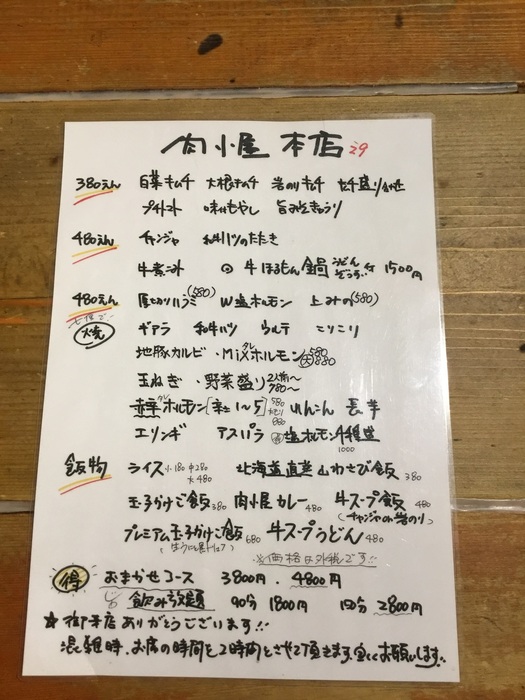 肉小屋 本店 29
380えん 白菜キムチ 大根キムチ 岩のりキムチ キムチ盛り合せ
プチトマト 味付もやし 旨みそきゅうり
480えん チャンジャ 和牛ハツのたたき
牛煮込み ◎ 牛ほるもん鍋 うどん ぞうすい 付 1500円
480えん 厚切りハラミ(580) W塩ホルモン 上ミノ(580)
焼 ギアラ 和牛ハツ ウルテ コリコリ
地豚カルビ ・MIXホルモン タレ 580 大880
玉ねぎ ・野菜盛り 2人前〜 780〜
赤辛ホルモン[辛さ1〜5] タレ 580 大モリ 880 れんこん 長芋
エリンギ アスパラ 塩ホルモン4種盛 1000
飯物 ライス 小180 中280 大480 北海道直送山わさび飯 380
玉子かけご飯 380 肉小屋カレー 480 牛スープ飯 480
(チャンジャ or 岩のり)
プレミアム玉子かけご飯 680 牛スープうどん 480
※価格は外税です!!
得 おまかせコース 3800円 . 4800円
飲み放題 90分 1800円 120分 2800円
☆ 御来店ありがとうございます!!
混雑時、お席の時間を2時間とさせて頂きます。宜しくお願いします。